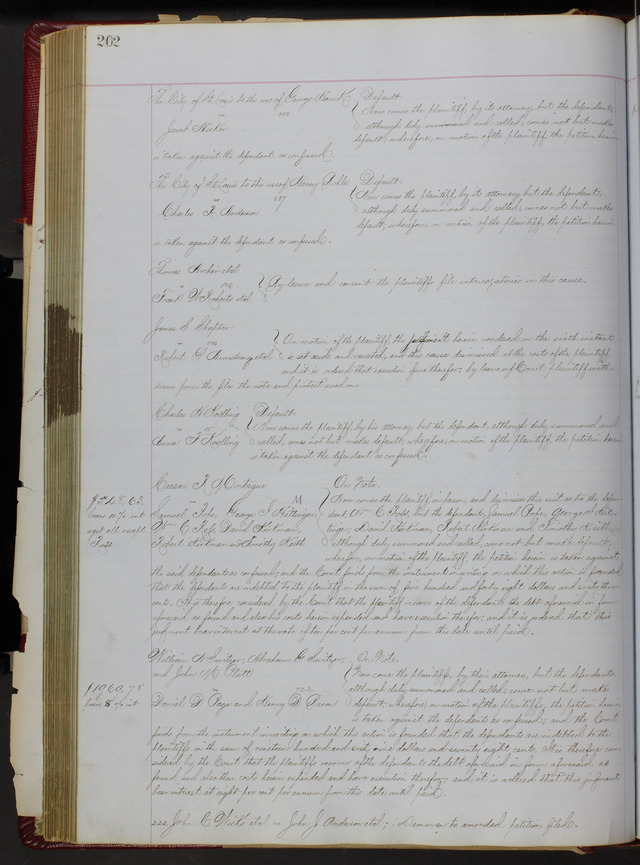 202
The City of St Louis to the use of George
Default
vs
Now comes the plaintiff, by its attorney, but the defendant,
Jacob
although duly summoned and called, comes not but makes
default; wherefore, on motion of the plaintiff, the petition herein
is taken against the defendant as confessed.
The City of St Louis to the use of Henry
Default
vs
187
Now comes the plaintiff, by its attorney, but the defendant,
Charles F. Anderson
although duly summoned and called, comes not but makes
default; wherefore, on motion of the plaintiff, the petition herein
is taken against the defendant as confessed.
Thomas et al
vs
By leave and consent the plaintiffs file interrogatories in this cause.
Frank W et al
James S.
vs
On motion of the plaintiff the judgment herein rendered on the sixth instant
Robert G et al
is set aside and vacated, and this cause dismissed at the costs of the plaintiff,
and it is ordered that execution issue therefor; by leave of Court plaintiff with-
draws from the files the note and protest sued on.
Charles H Koelling
Default
vs
Now comes the plaintiff, by his attorney, but the defendant, although duly summoned and
Anna F Koelling
called, comes not but makes default; wherefore on motion of the plaintiff, the petition herein
is taken against the defendant as confessed.
Montague
On Note.
$548,63
bears 10 % int
agst all except
vs
Now comes the plaintiff in person, and dismisses this suit as to the defen-
Samuel Pope, George S
dant Wm C but the defendants, Samuel Pope, George S
Wm C David
David Robert and Timothy Keith,
Robert and Timothy Keith
although duly summoned and called, come not but make default;
wherefore, on motion of the plaintiff the petition herein is taken against
the said defendants as confessed; and the Court finds from the instrument in writing on which this action is founded
that the defendants are indebted to the plaintiff in the sum of five hundred and forty eight dollars and sixty three
cents. It is therefore considered by the Court that the plaintiff recover of the defendants the debt aforesaid in form
aforesaid as found and also his costs herein expended and have execution therefor; and it is ordered that this
judgment bear interest at the rate of ten per cent per annum from this date until paid.
William N Switzer, Abraham G Switzer
On Note.
and John M Platt
Now come the plaintiffs, by their attorney, but the defendants
$1960,78
bears 8 % int
vs
722
although duly summoned and called, come not but make
Daniel D Page and Henry D
default; wherefore, on motion of the plaintiffs, the petition herein
is taken against the defendants as confessed; and the Court
finds from the instrument in writing on which this action is founded that the defendants are indebted to the
plaintiffs in the sum of nineteen hundred and sixty dollars and seventy eight cents. It is therefore con-
sidered by the Court that the plaintiffs recover of the defendants the debt aforesaid in form aforesaid as
found and also their costs herein expended and have execution therefor; and it is ordered that this judgment
bear interest at eight per cent per annum from this date until paid.
222 John C et al vs John J Anderson et al; Demurrer to amended petition filed.